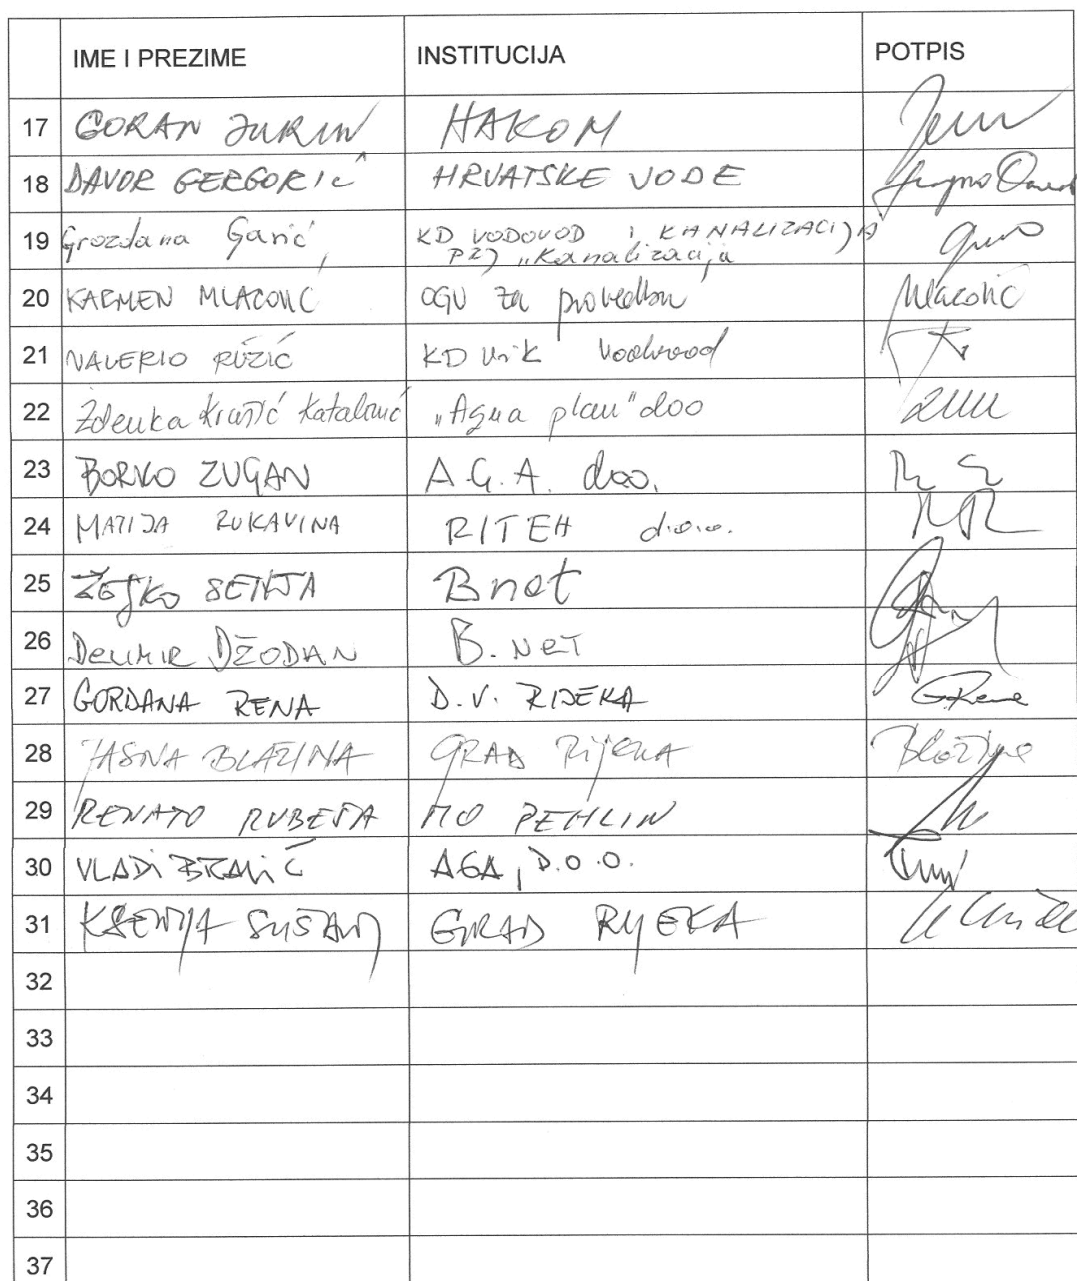 IME I PREZIME INSTITUCIJA POTPIS
17 GORAN JURIN HAKOM
18 DAVOR GERGORIĆ HRVATSKE VODE
19 Grozdana Garić KD VODOVOD I KANALIZACIJA
PRJ "Kanalizacija
20 KARMEN MLACOVIĆ OGU za provedbu Mlacović
21 VALERIO RUŽIĆ KD ViK Vodovod
22 Zdenka Katalinić "Aqua plan" doo
23 BORKO ZUGAN A.G.A. doo.
24 MATIJA RUKAVINA RITEH d.o.o.
25 ŽELJKO SENTA Bnet
26 DELIMIR DŽODAN B.NET
27 GORDANA RENA D.V. RIJEKA G.Rena
28 JASNA BLAŽINA GRAD RIJEKA Blažina
29 RENATO RUBEŠA MO PEHLIN
30 VLADI BRALIĆ AGA, D.O.O.
31 KSENIJA SUŠANJ GRAD RIJEKA
32
33
34
35
36
37